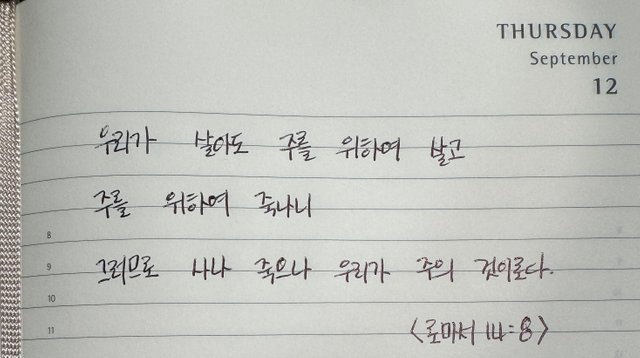 THURSDAY
September
12
우리가 살아도 주를 위하여 살고
주를 위하여 죽나니
8
그러므로 사나 죽으나 우리가 주의 것이로다.
9
10
<로마서 14:8>
11